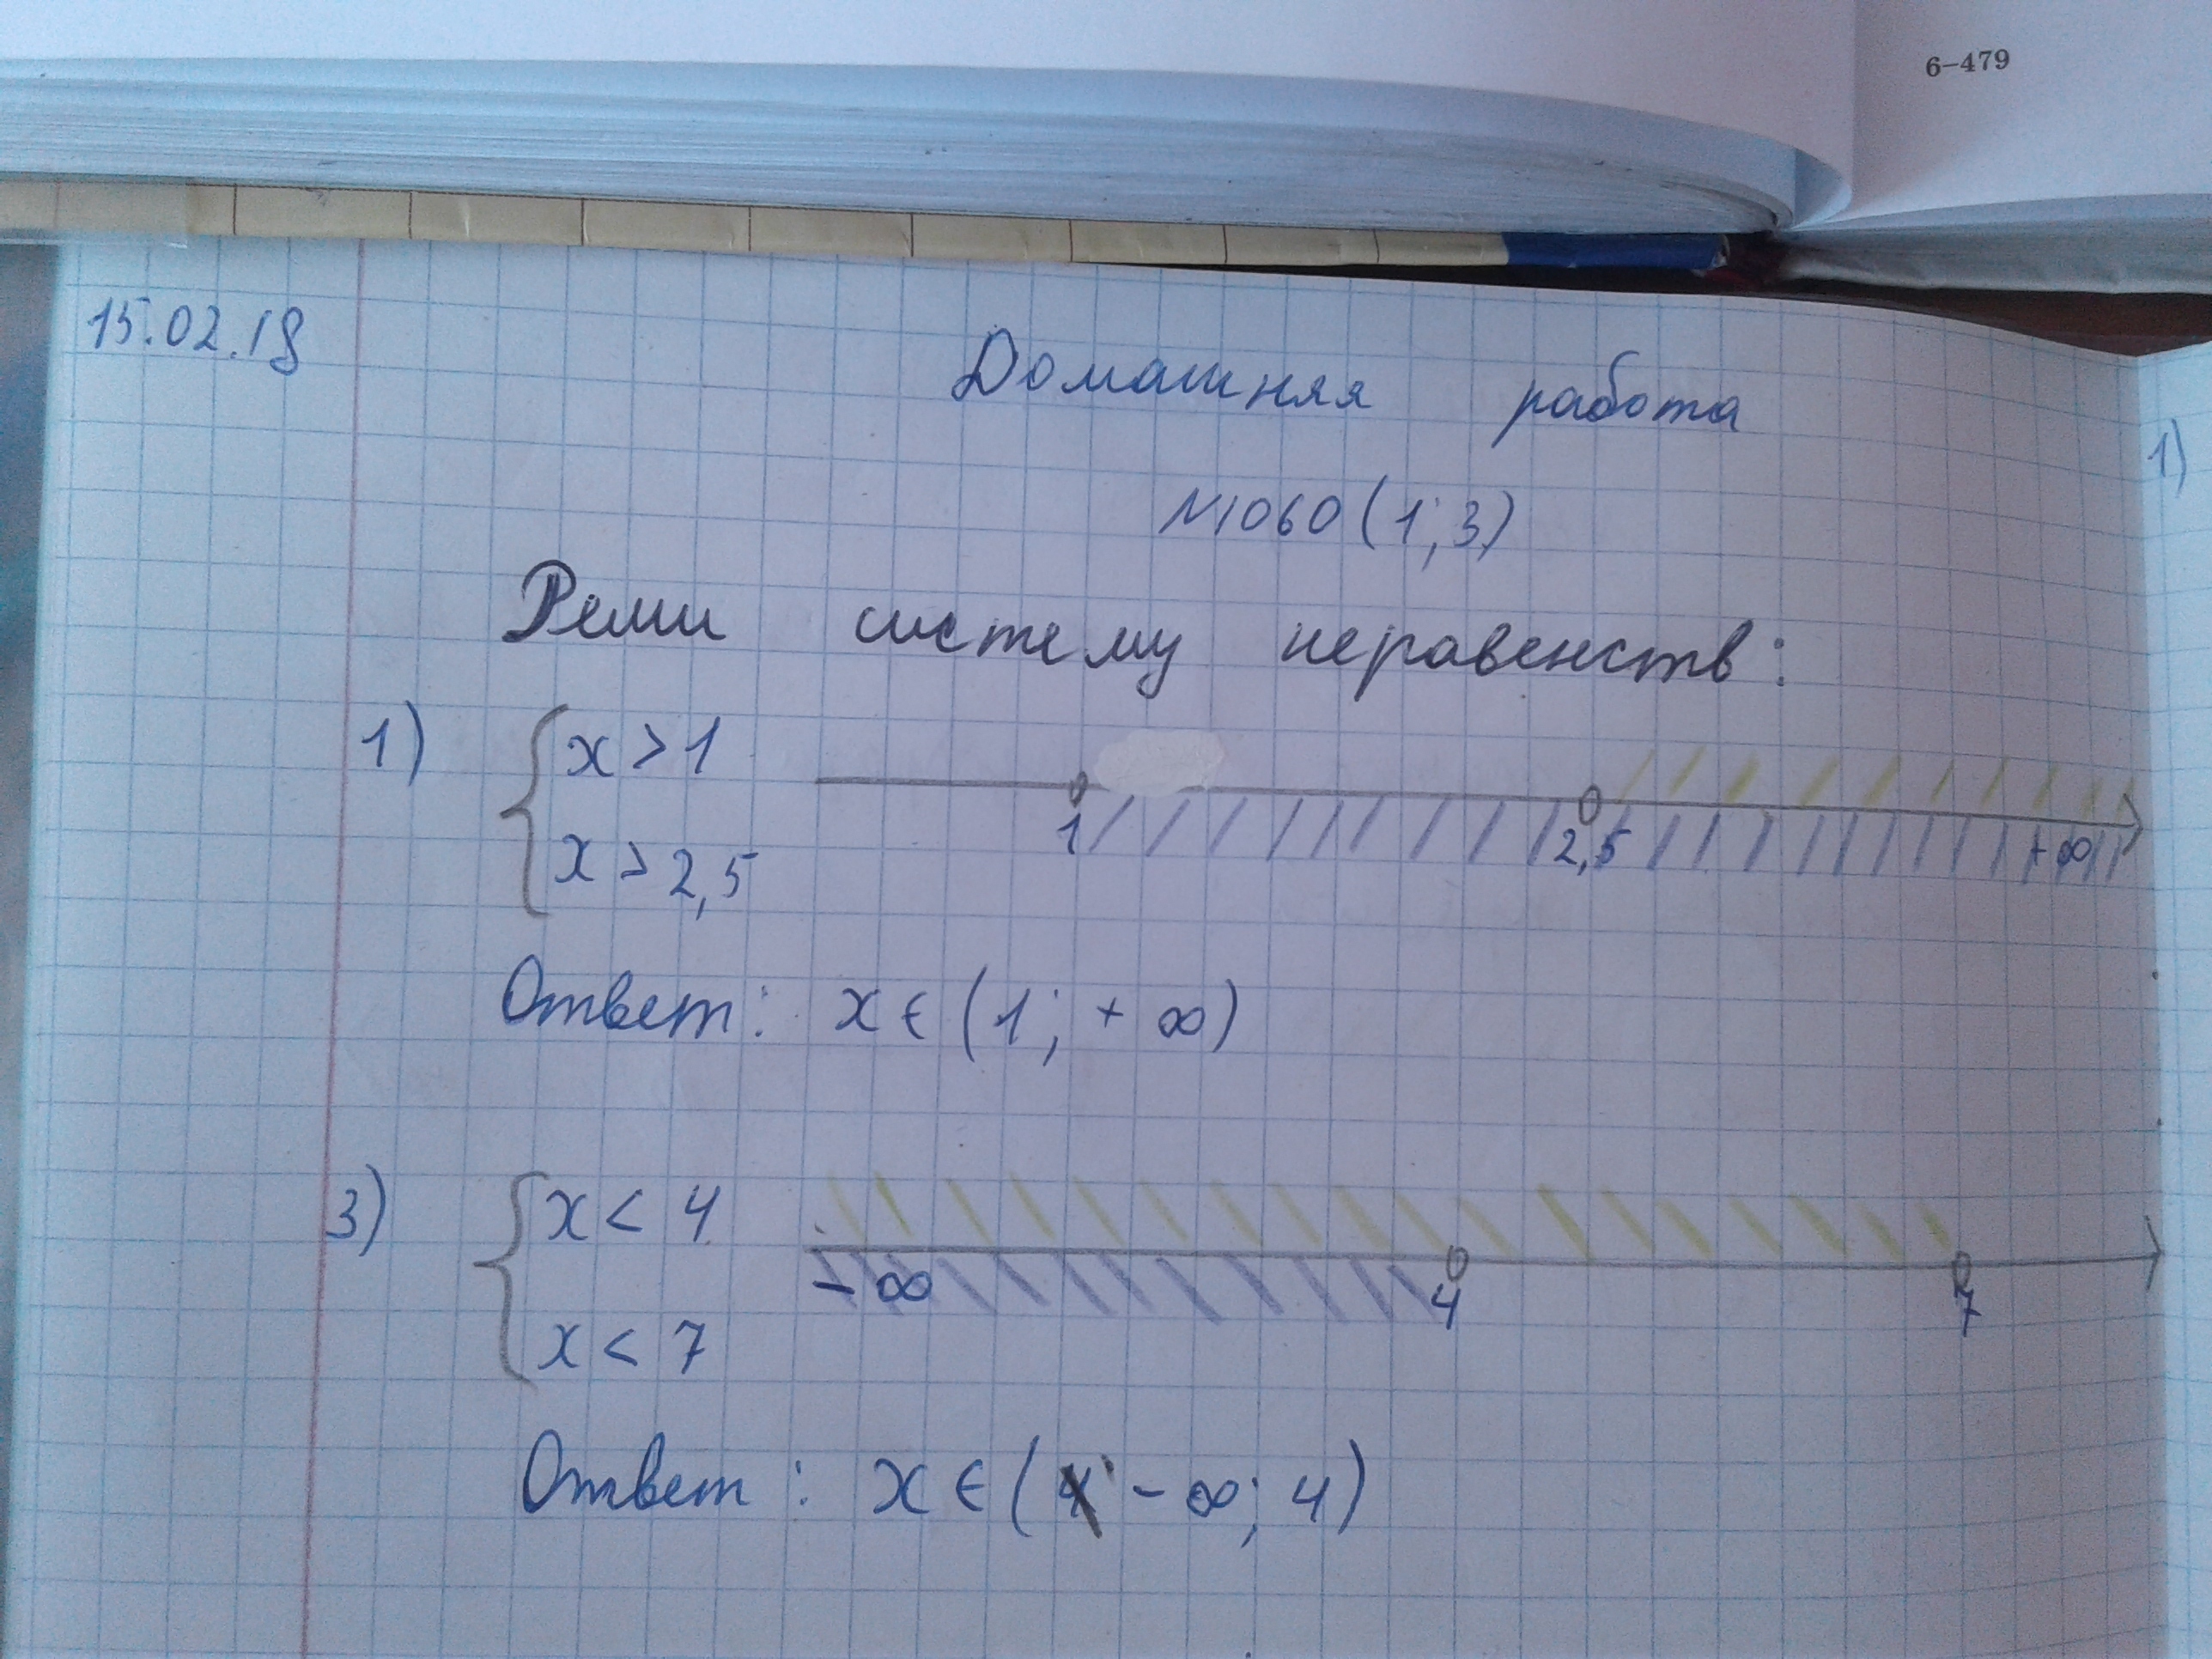 6–479
15.02.18
Домашняя работа
1)
№1060 (1; 3)
Реши систему неравенств:
1) { x > 1
x > 2,5
1 2,5 +∞
Ответ: x ∈ (1; + ∞)
3) { x < 4
x < 7
- ∞ 4 7
Ответ: x ∈ ( - ∞; 4)